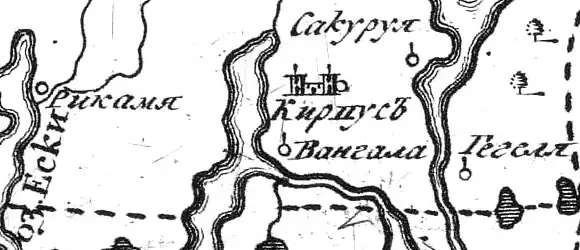 Сакурул
Рикамя
Кирпусъ
Вангала
Гегеля
оз. Ески